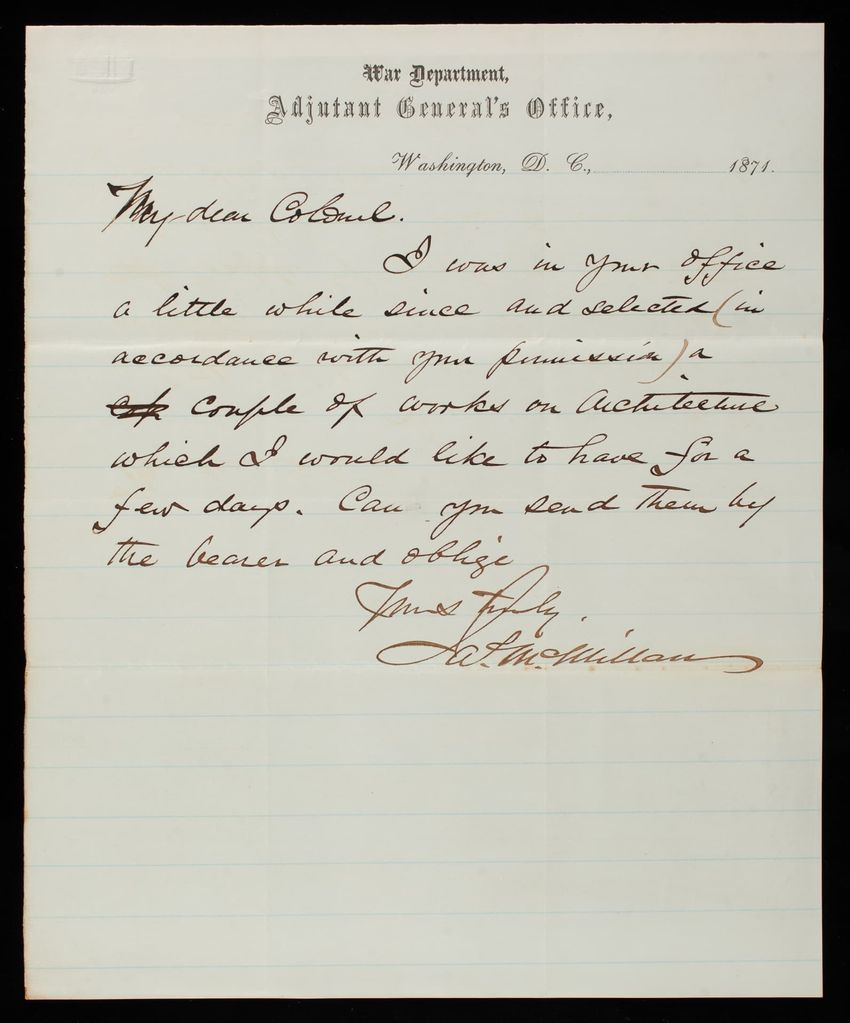 War Department,
Adjutant General's Office,
Washington, D. C., 1871.
My dear Colonel.
I was in your office
a little while since and selected (in
accordance with your permission) a
couple of works on Architecture
which I would like to have for a
few days. Can you send them by
the bearer and oblige
Yours truly,
Jas. McMillan